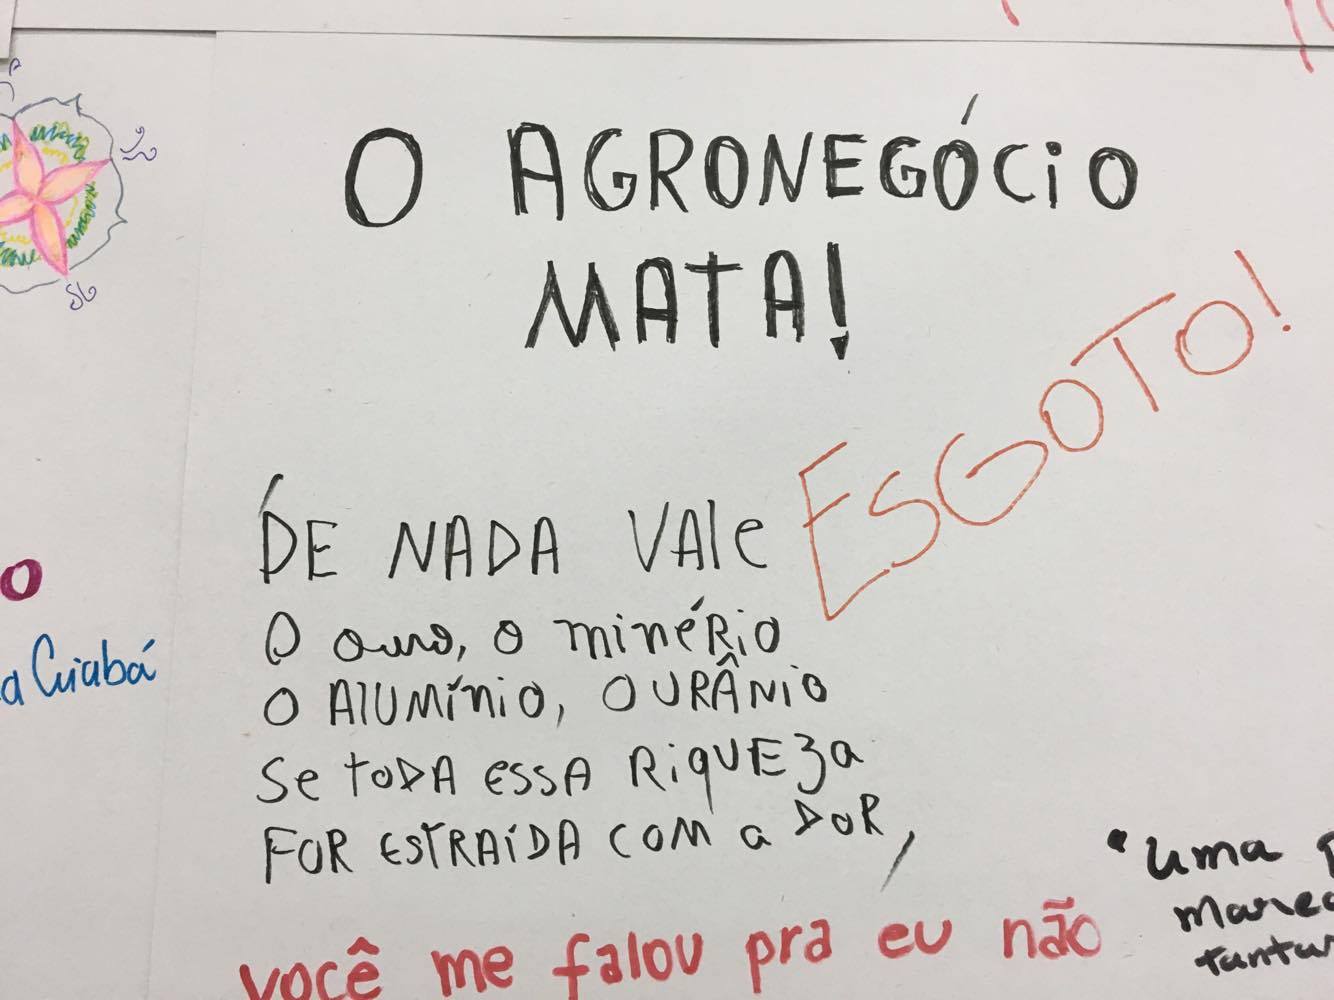 O AGRONEGÓCiO
MATA!
ESGOTO!
DE NADA VAle
O ouro, o minéRiO
O AlUMíniO, O URÂNiO
Se toDA ESSA RiqUEza
FOR ESTRAÍDA COM a DOR,
você me falou pra eu não
"uma
tantas
o
a Cuiabá